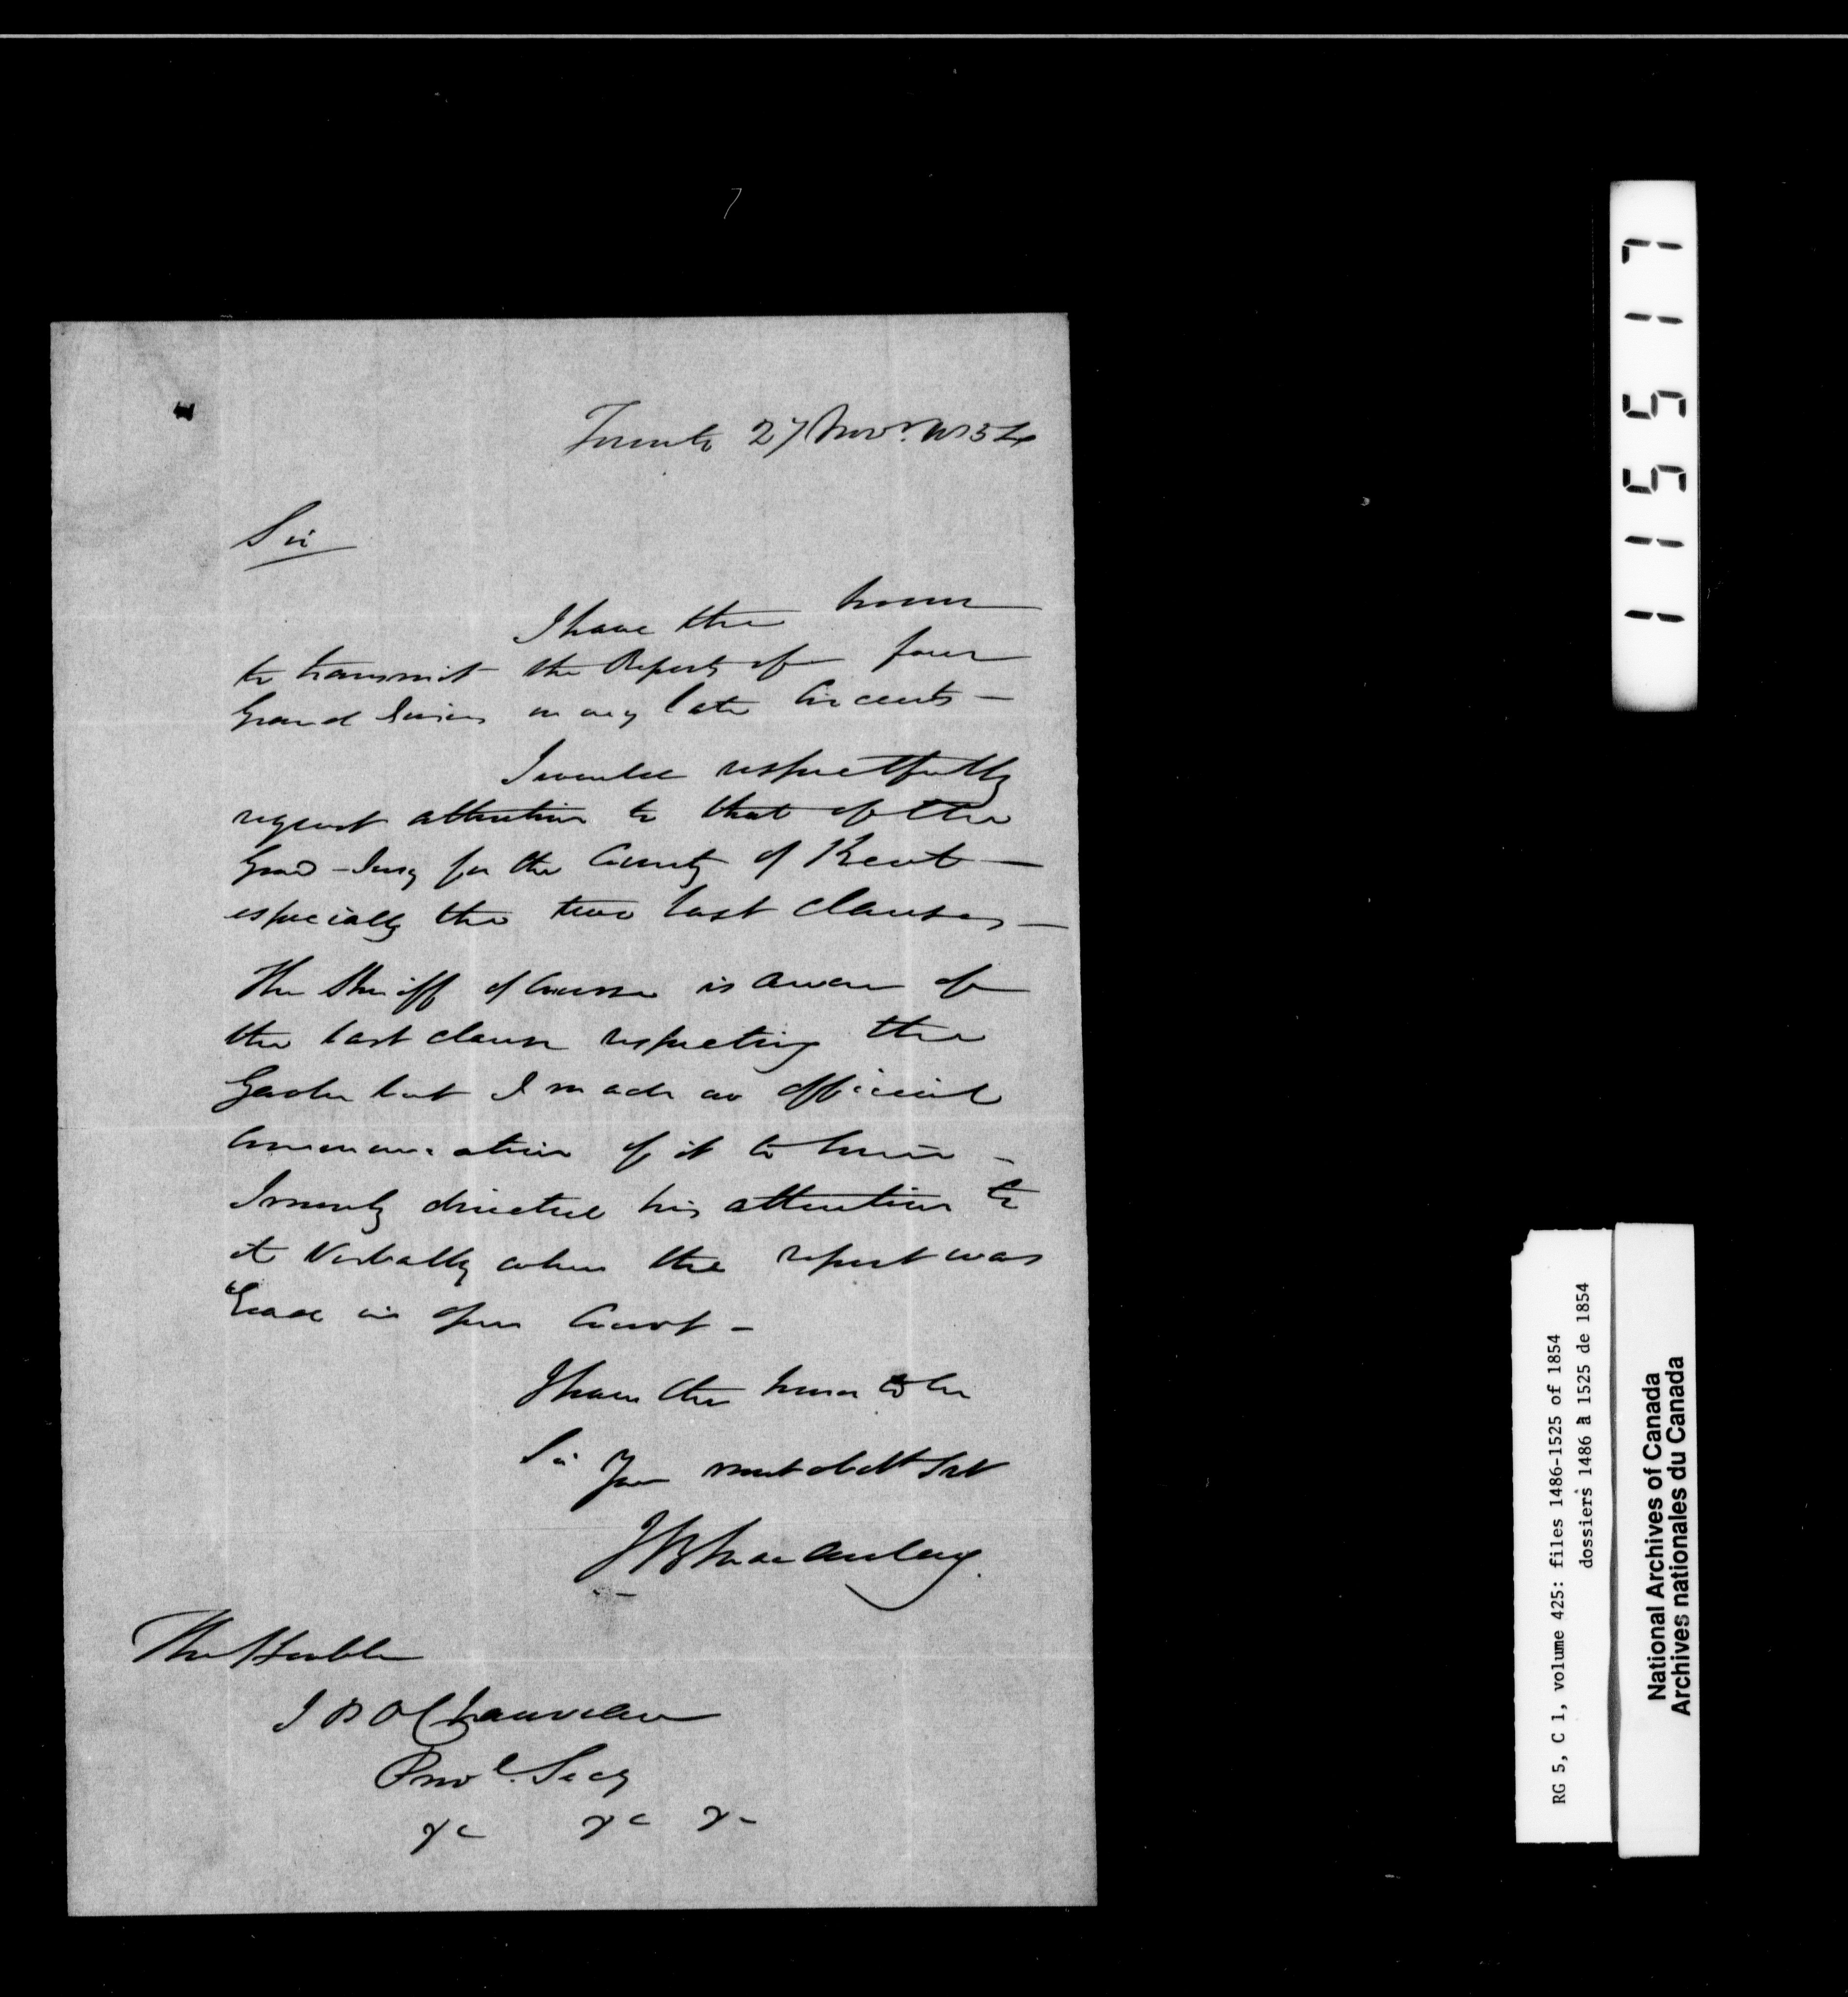 Toronto 27 Novr. 1854
Sir
I have the honor
to transmit the Reports of four
Grand Juries on my late Circuits —
I would respectfully
request attention to that of the
Grand - Jury for the County of Kent —
especially the two last clauses —
The Sheriff of course is aware of
the last clause respecting the
Gaoler but I made no official
communication of it to him —
I merely directed his attention to
it verbally when the report was
read in open Court —
I have the honor to be
Sir Your most obedt Svt
J B Macaulay.
The Honble
P J O Chauveau
Provl. Secy
&c &c &c
111551 7
RG 5, C 1, volume 425: files 1486-1525 of 1854
dossiers 1486 à 1525 de 1854
National Archives of Canada
Archives nationales du Canada